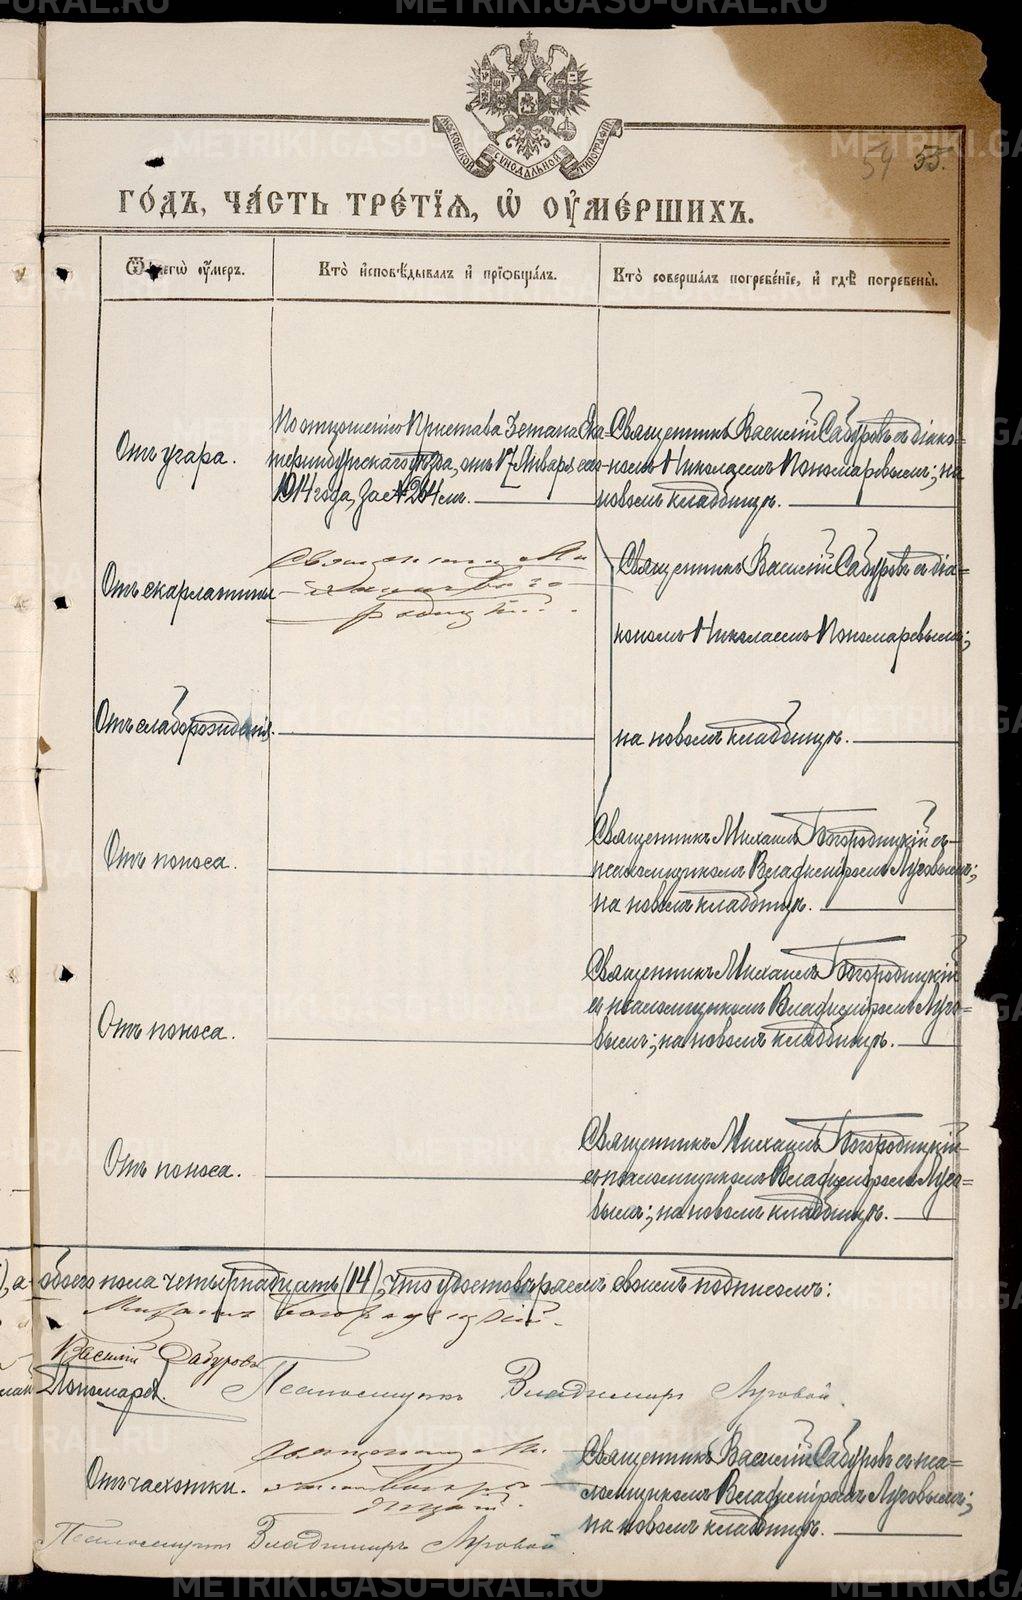 METRIKI.GASO-URAL.RU
МОСКОВСКОЙ СѴНОДАЛЬНОЙ ТИПОГРАФІИ
54 55.
ГО́ДЪ, ЧА́СТЬ ТРЕ́ТІѦ, Ѡ҆ ОУ҆МЕ́РШИХЪ.
Ѿ чегѡ̀ оу҆́меръ. Кто̀ и҆сповѣ́дывалъ и҆ прїѡбща́лъ. Кто̀ соверша́лъ погребе́нїе, и҆ гдѣ̀ погребены̀.
Отъ угара.
По отношенію Пристава 3 стана Ека-
теринбургскаго уѣзда, отъ 17 Января сего
1914 года, за № 264 мъ.
Священникъ Василій Сабуровъ съ діако-
номъ Николаемъ Пономаревымъ; на
новомъ кладбищѣ.
Отъ скарлатины
Священникъ Ми-
хаилъ Бого-
родицкій.
Священникъ Василій Сабуровъ съ діа-
кономъ Николаемъ Пономаревымъ;
Отъ слаборожденія.
на новомъ кладбищѣ.
Отъ поноса.
Священникъ Михаилъ Богородицкій съ
псаломщикомъ Владиміромъ Луговымъ;
на новомъ кладбищѣ.
Отъ поноса.
Священникъ Михаилъ Богородицкій
съ псаломщикомъ Владиміромъ Луго-
вымъ; на новомъ кладбищѣ.
Отъ поноса.
Священникъ Михаилъ Богородицкій
съ псаломщикомъ Владиміромъ Луго-
вымъ; на новомъ кладбищѣ.
), а обоего пола четырнадцать (14), что удостовѣряемъ своимъ подписомъ:
Михаилъ Богородицкій.
Василій Сабуровъ
Пономаревъ. Псаломщикъ Владимиръ Луговой.
Отъ чахотки.
Священникъ Ми-
хаилъ Богоро-
дицкій.
Священникъ Василій Сабуровъ съ пса-
ломщикомъ Владиміромъ Луговымъ;
на новомъ кладбищѣ.
Псаломщикъ Владимиръ Луговой